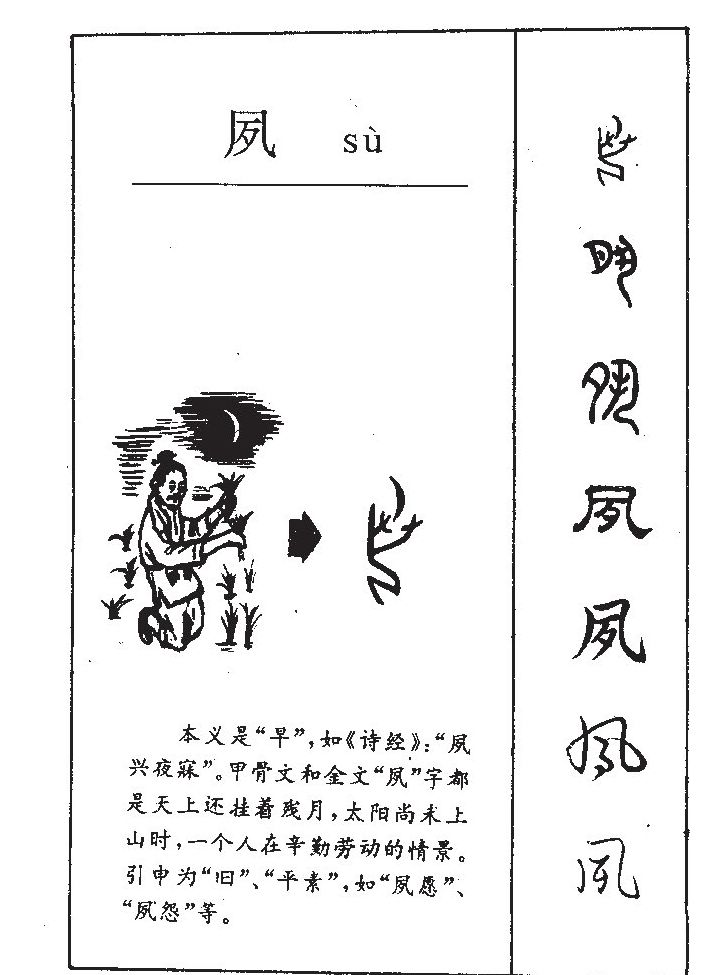 夙 sù
本义是“早”,如《诗经》:“夙
兴夜寐”。甲骨文和金文“夙”字都
是天上还挂着残月,太阳尚未上
山时,一个人在辛勤劳动的情景。
引申为“旧”、“平素”,如“夙愿”、
“夙怨”等。
夙
夙
夙
夙
夙
夙
夙